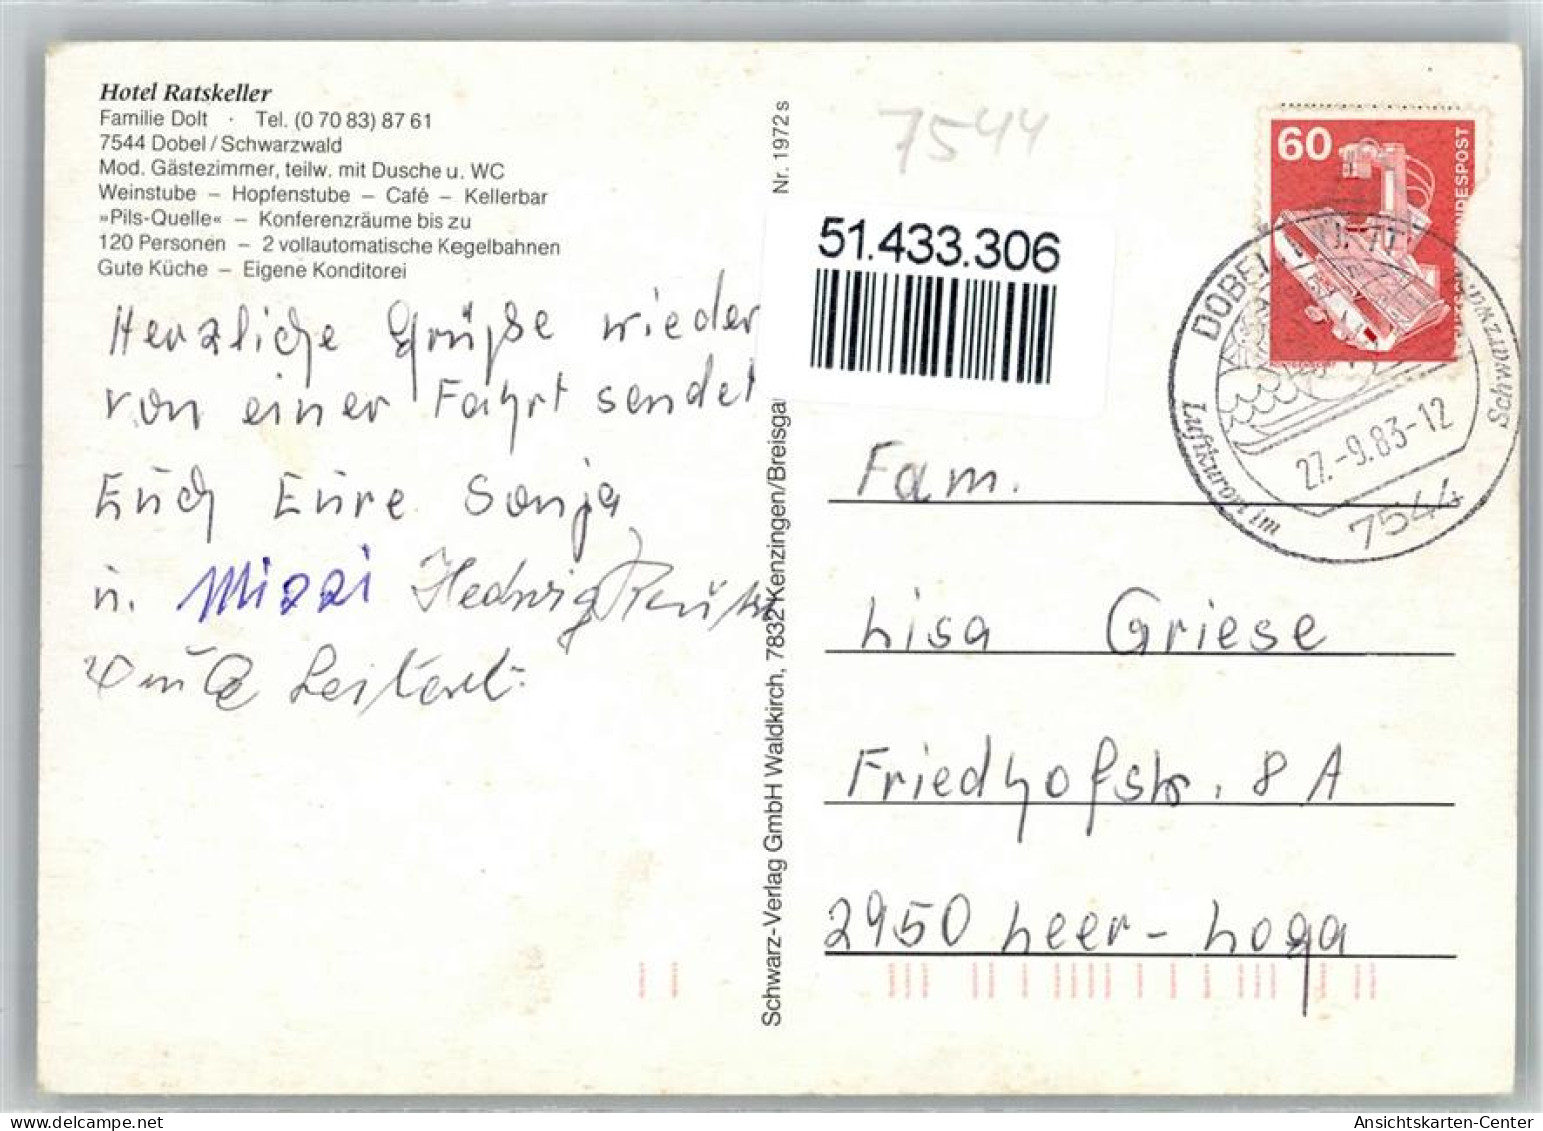 Hotel Ratskeller
Familie Dolt · Tel. (0 70 83) 87 61
7544 Dobel / Schwarzwald
Mod. Gästezimmer, teilw. mit Dusche u. WC
Weinstube – Hopfenstube – Café – Kellerbar
»Pils-Quelle« – Konferenzräume bis zu
120 Personen – 2 vollautomatische Kegelbahnen
Gute Küche – Eigene Konditorei
Herzliche Grüße wieder
von einer Fahrt sendet
Euch Eure Sonja
u. Mizzi Hedwig
Schwarz-Verlag GmbH Waldkirch, 7832 Kenzingen/Breisga
Nr. 1972 s
7544
51.433.306
60
DESPOST
DOBEL
Schwarzwald
Luftkurort im
27.-9.83-12
7544
Fam.
Lisa Griese
Friedhofstr. 8 A
2950 Leer-Loga
Ansichtskarten-Center
delcampe.net